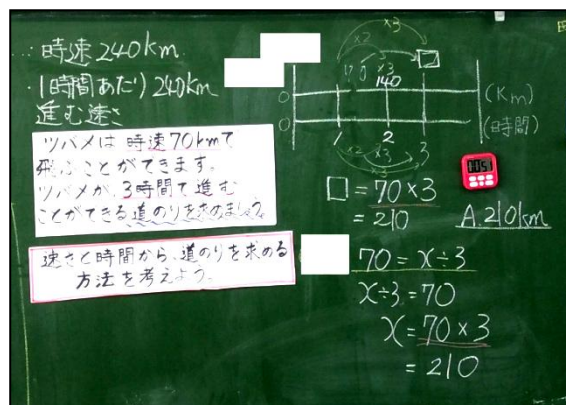 時速240km
・1時間あたり240km
進む速さ
ツバメは時速70kmで
飛ぶことができます。
ツバメが、3時間で進む
ことができる道のりを求めましょう。
速さと時間から、道のりを求める
方法を考えよう。
×3
×2
70
140
□
0
(km)
0
(時間)
1
2
3
×2
×3
□=70×3
=210
A.210km
70=x÷3
x÷3=70
x=70×3
=210